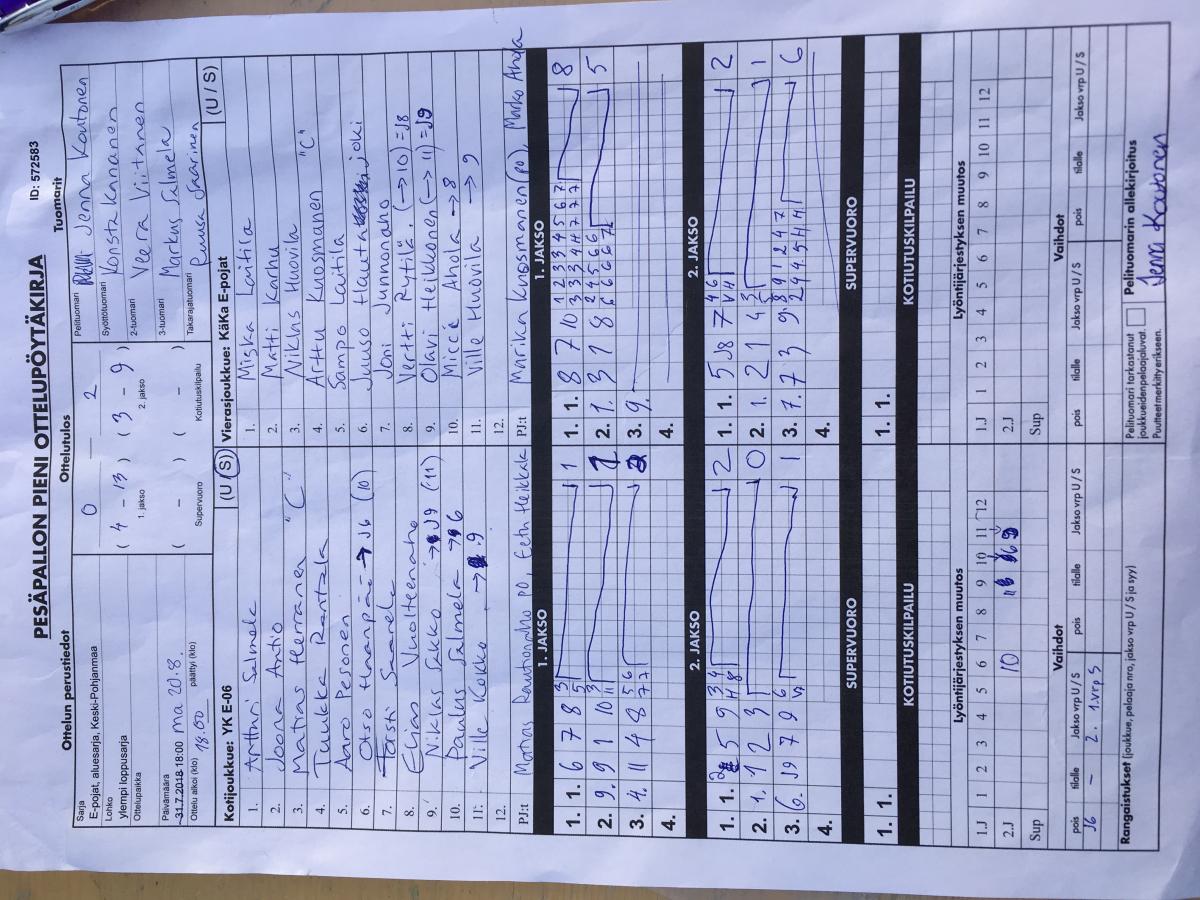 PESÄPALLON PIENI OTTELUPÖYTÄKIRJA
ID: 572583
Ottelun perustiedot
Ottelutulos
Tuomarit
Sarja
E-pojat, aluesarja, Keski-Pohjanmaa
Lohko
ylempi loppusarja
Ottelupaikka
Päivämäärä
31.7.2018 18:00 ma 20.8.
Ottelu alkoi (klo) 18.00 päättyi (klo)
0 2
( 4 - 13 ) ( 3 - 9 )
1. jakso 2. jakso
( - ) ( - )
Supervuoro Kotiutuskilpailu
Pelituomari Jenna Koutonen
Syöttötuomari Konsta Kannanen
2-tuomari Veera Viitanen
3-tuomari Markus Salmela
Takarajatuomari Ruusa Saarinen
Kotijoukkue: YK E-06 (U / S)
1. Arthuri Salmela
2. Joona Antio
3. Matias Herranen "C"
4. Tuukka Rantala
5. Aaro Pesonen
6. Otso Haanpää → J6 (10)
7. Saarela
8. Elias Vuolteenaho
9. Niklas Sakko → J9 (11)
10. Paulus Salmela → 6
11. Ville Kokko → 9
12.
PJ:t Matias Rautionaho PO, Eetu Heikkala
Vierasjoukkue: KäKa E-pojat (U / S)
1. Miska Laitila
2. Matti Karhu
3. Niklas Huovila "C"
4. Arttu Kuosmanen
5. Sampo Laitila
6. Juuso Hautajoki
7. Joni Junnonaho
8. Vertti Rytilä (→ 10) = J8
9. Olavi Heikkonen (→ 11) = J9
10. Ahola → 8
11. Ville Huovila → 9
12.
PJ:t Marika Kuosmanen (po), Marko Ahola
1. JAKSO
1. 1. 6 7 8 1
2. 9. 9 1 10
3. 4. 11 4 8
4.
1. JAKSO
1. 1. 8 7 10 8
2. 1. 3 1 8 5
3. 9.
4.
2. JAKSO
1. 1. 5 9 2
2. 1. 1 2 3 0
3. 6. J9 7 9 1
4.
2. JAKSO
1. 1. 5 J8 7 2
2. 1. 2 1 4 1
3. 1. 7 3 9 6
4.
SUPERVUORO
1. 1.
SUPERVUORO
1. 1.
KOTIUTUSKILPAILU
KOTIUTUSKILPAILU
Lyöntijärjestyksen muutos
1.J 1 2 3 4 5 6 7 8 9 10 11 12
2.J 10
Sup
Lyöntijärjestyksen muutos
1.J 1 2 3 4 5 6 7 8 9 10 11 12
2.J
Sup
Vaihdot
pois tilalle Jakso vrp U / S pois tilalle Jakso vrp U / S
J6 - 2. 1.vrp S
Vaihdot
pois tilalle Jakso vrp U / S pois tilalle Jakso vrp U / S
Rangaistukset (joukkue, pelaaja nro, jakso vrp U / S ja syy)
Pelituomari tarkastanut
joukkueidenpelaajaluvat.
Puutteet merkitty erikseen.
Pelituomarin allekirjoitus
Jenna Koutonen